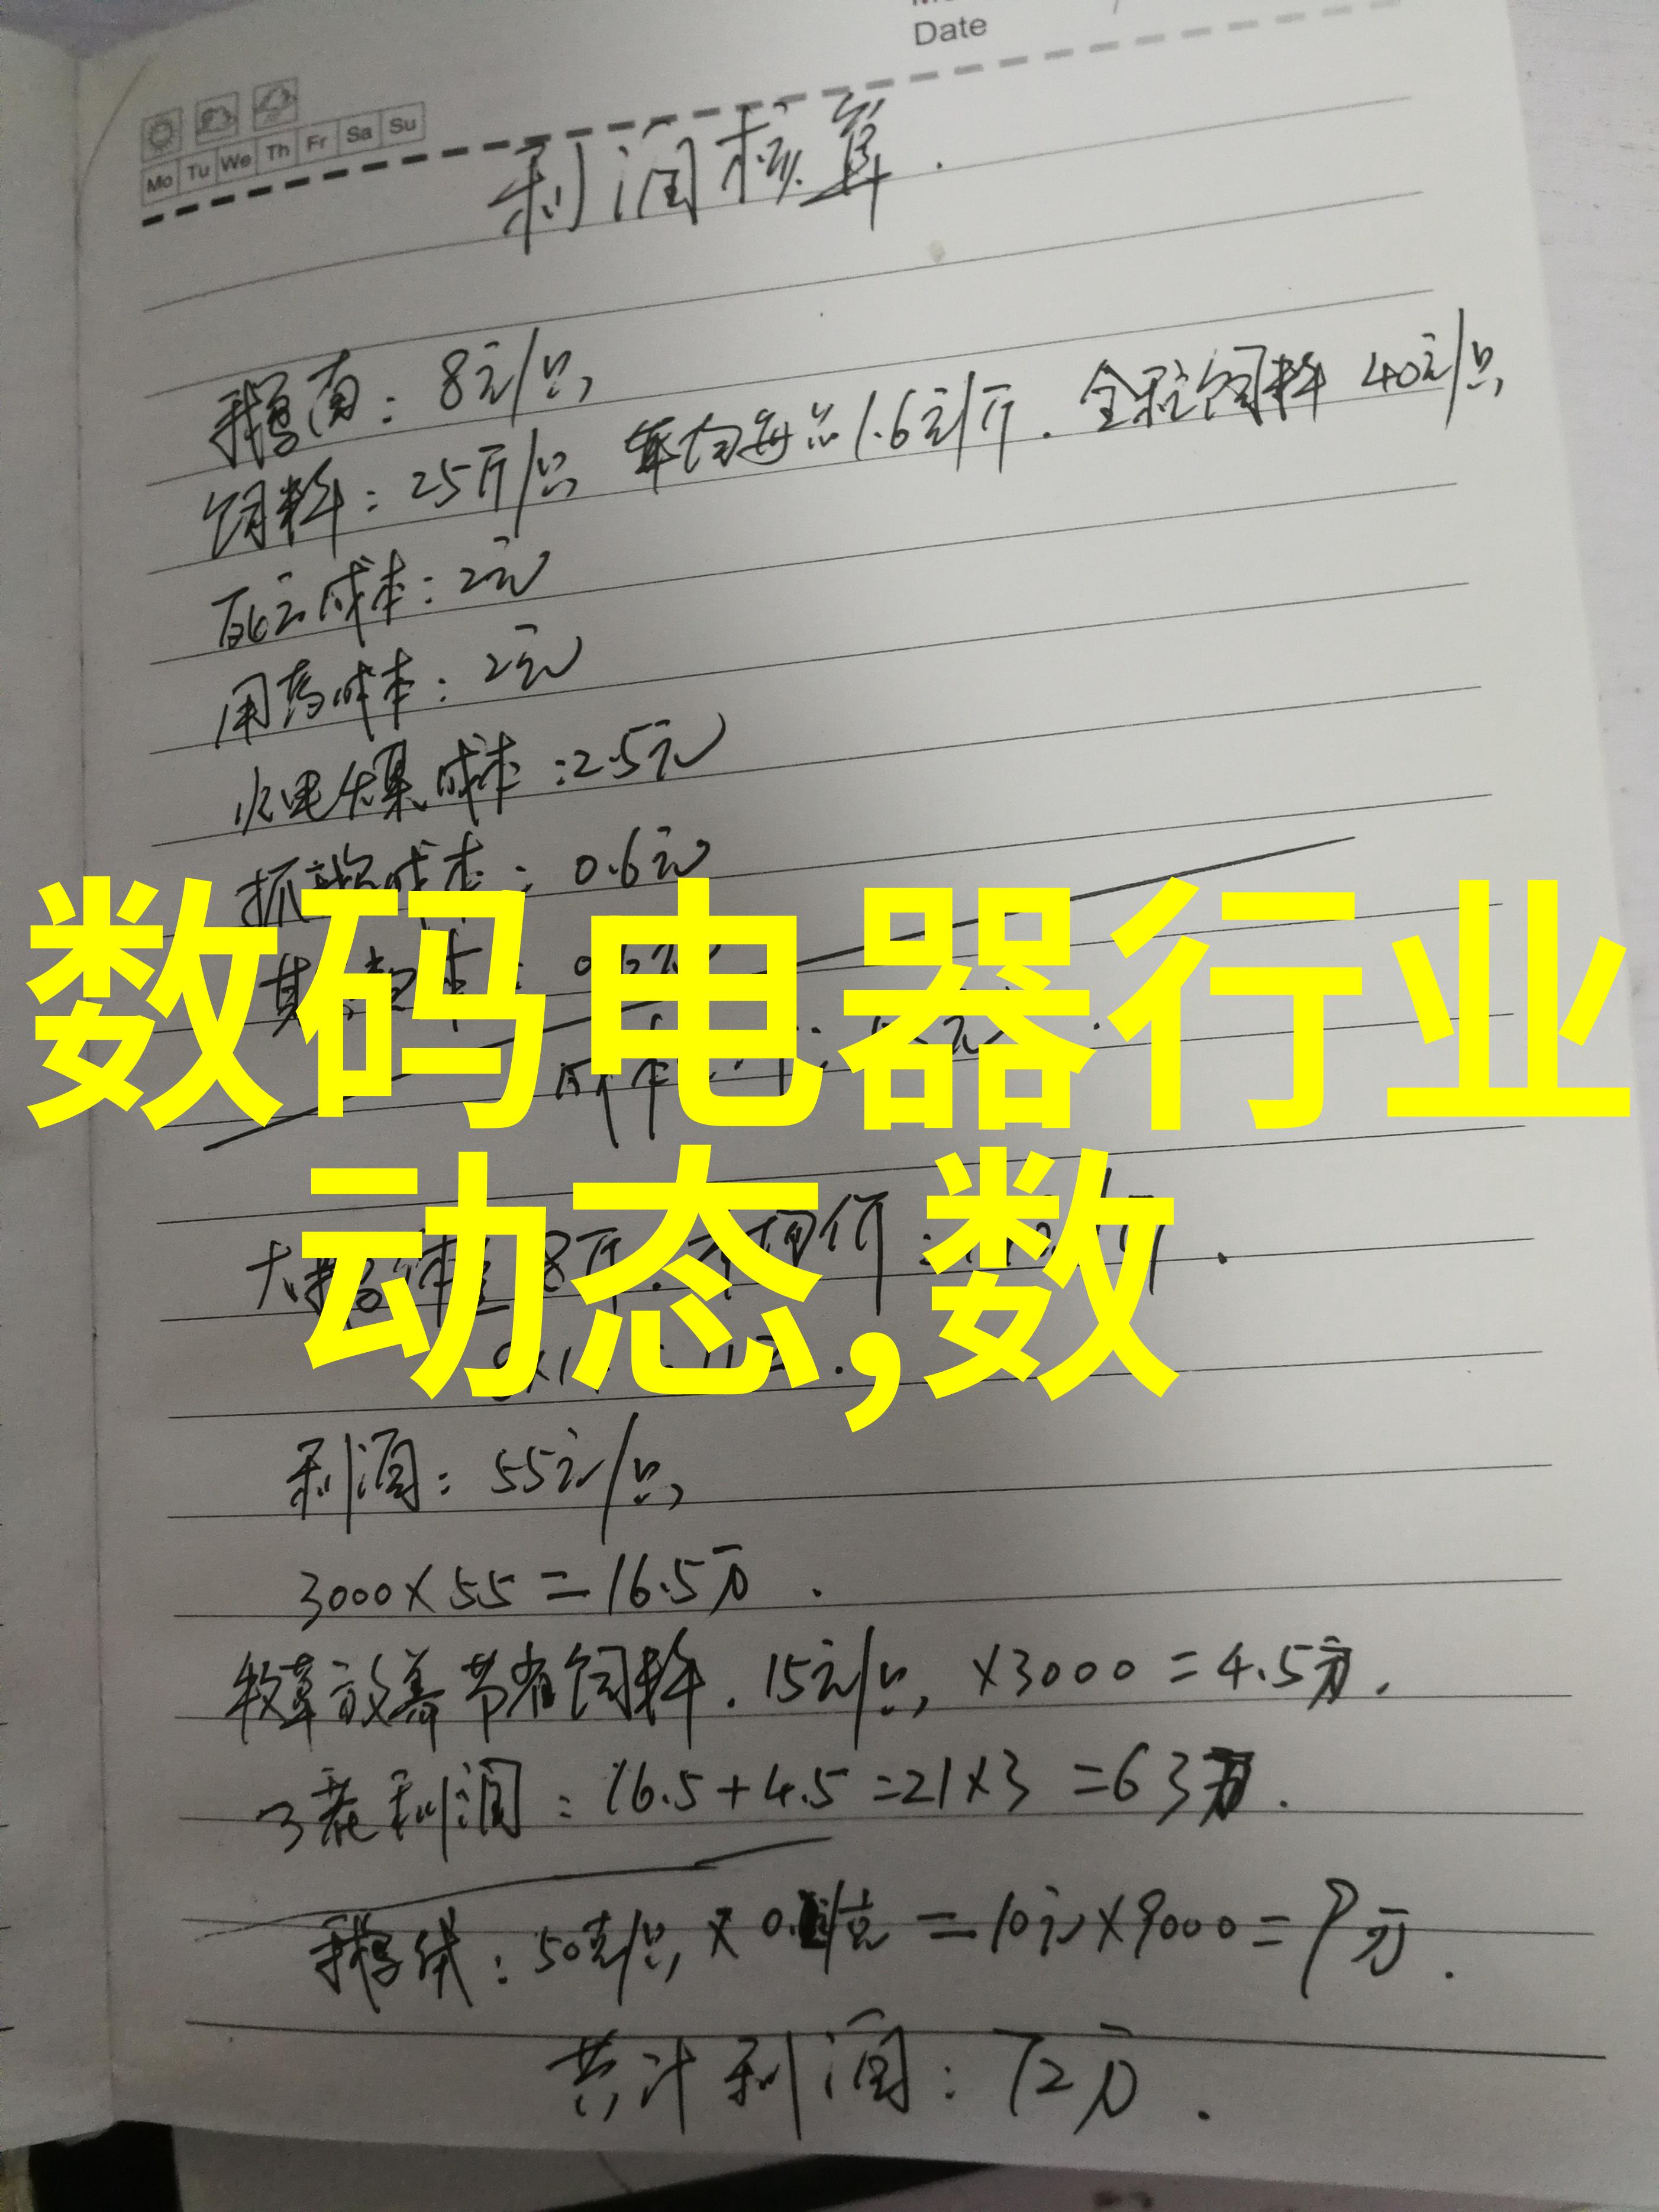 Date
Mo Tu We Th Fr Sa Su
利润核算.
鹅苗：8元/只
饲料：25斤/只 平均每 1.6元/斤. 全程饲料 40元/只
死亡成本：2元
用药成本：2元
水电煤成本：2.5元
抓 成本：0.6元
数码电器行业
动态,数
利润：55元/只
3000×55=16.5万.
牧草放养节省饲料. 15元/只, ×3000=4.5万.
3茬利润：16.5+4.5=21×3=63万.
鹅绒：50克/只 × =10元×9000=9万.
共计利润：72万.